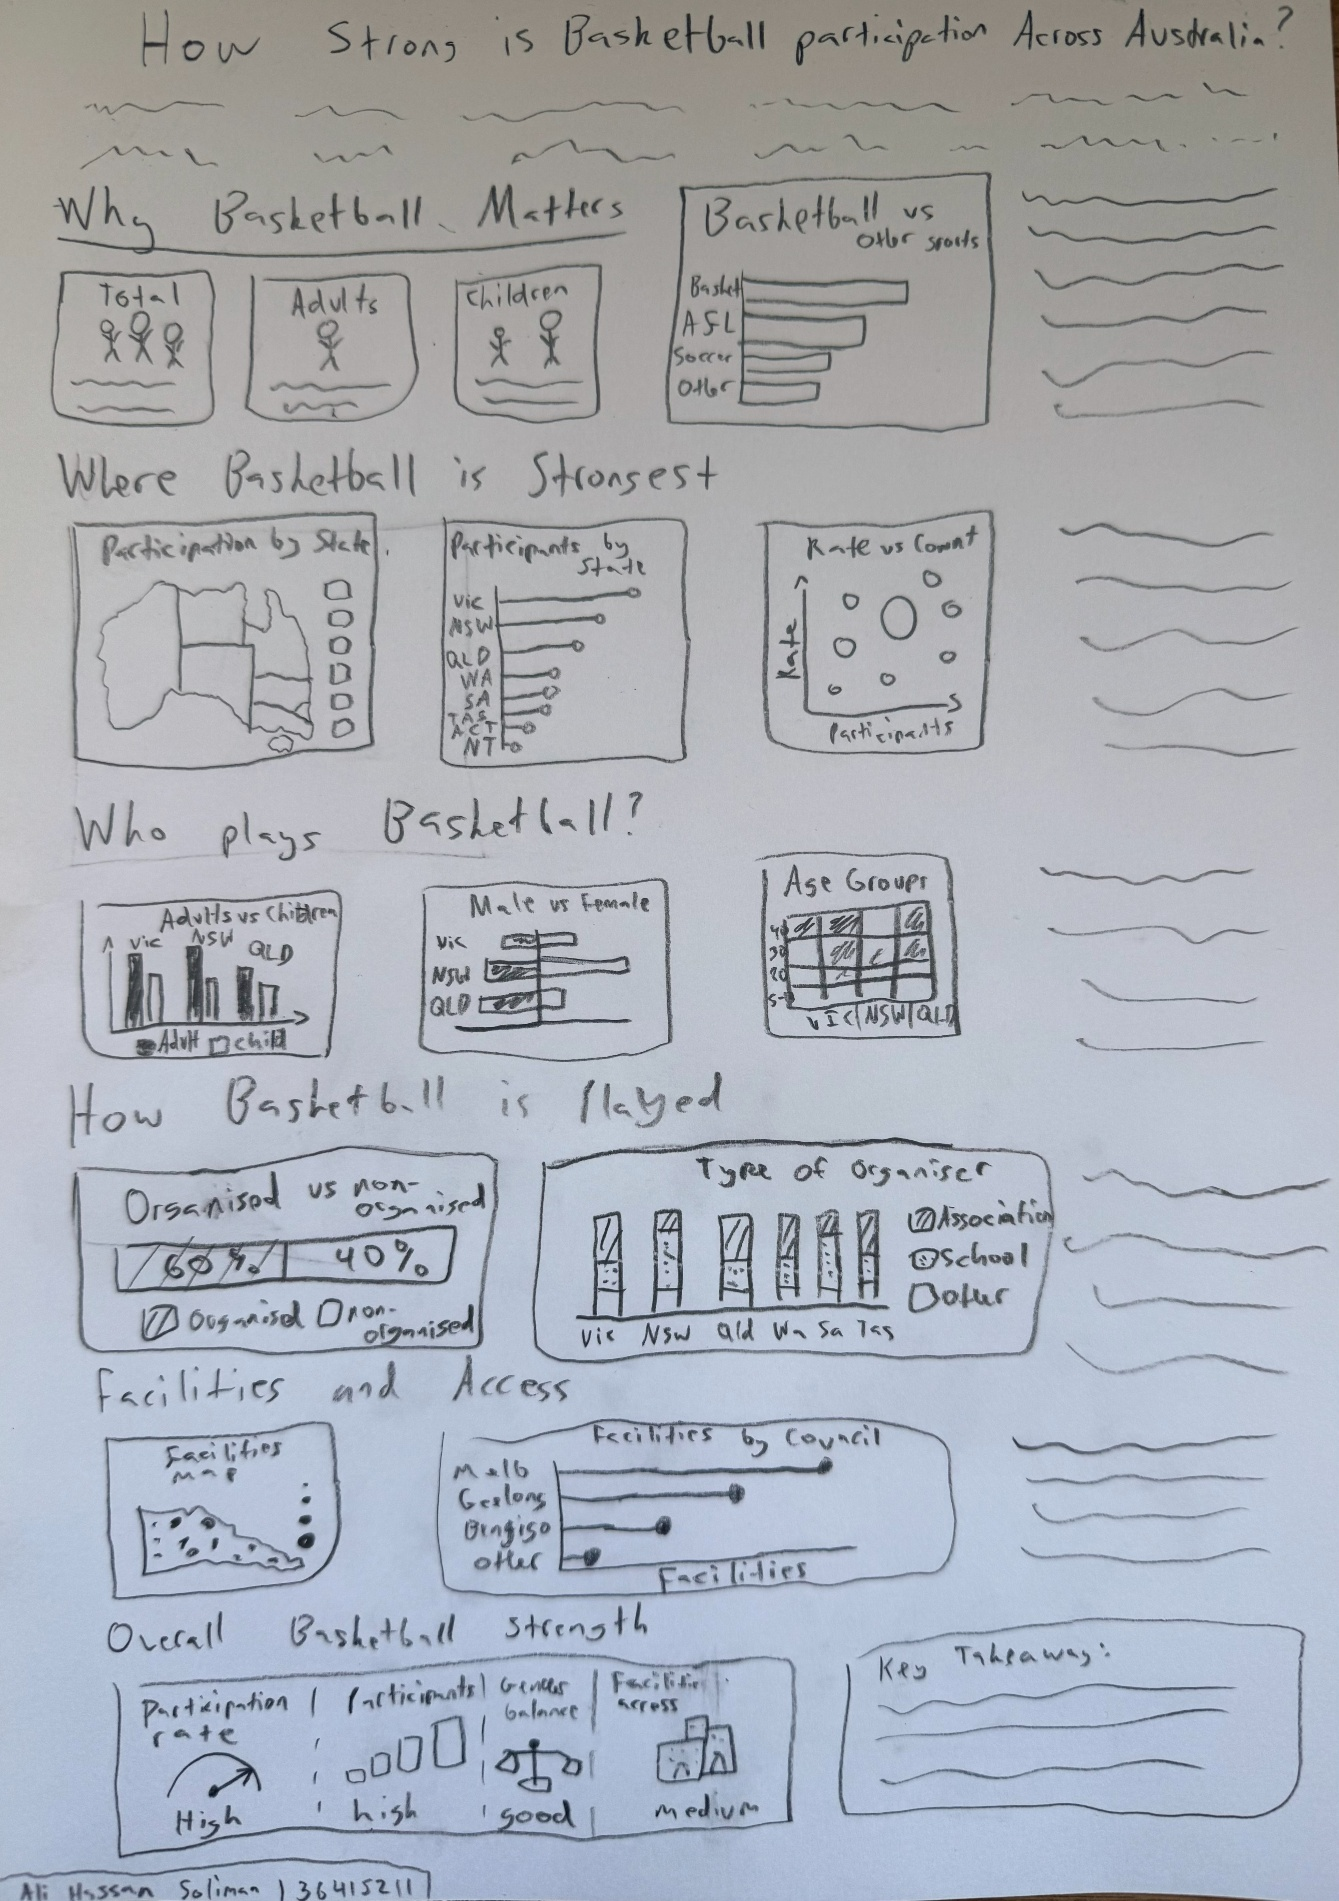 How Strong is Basketball participation Across Australia?
Why Basketball Matters
Total
Adults
Children
Basketball vs
other sports
Basket
AFL
Soccer
Other
Where Basketball is Strongest
Participation by State
Participants by
State
Vic
NSW
QLD
WA
SA
TAS
ACT
NT
Rate vs Count
Rate
Participants
Who plays Basketball?
Adults vs Children
Vic
NSW
QLD
Adult child
Male vs Female
Vic
NSW
QLD
Age Groups
40
30
20
VIC|NSW|QLD
How Basketball is Played
Organised vs non-
organised
60% 40%
Organised non-
organised
Type of Organiser
Association
School
other
Vic NSW Qld Wa Sa Tas
Facilities and Access
Facilities
map
Facilities by Council
Melb
Geelong
Other
Facilities
Overall Basketball Strength
Participation
rate
High
Participants
high
Gender
balance
good
Facilities
access
medium
Key Takeaway:
Ali Hassan Soliman | 36415211